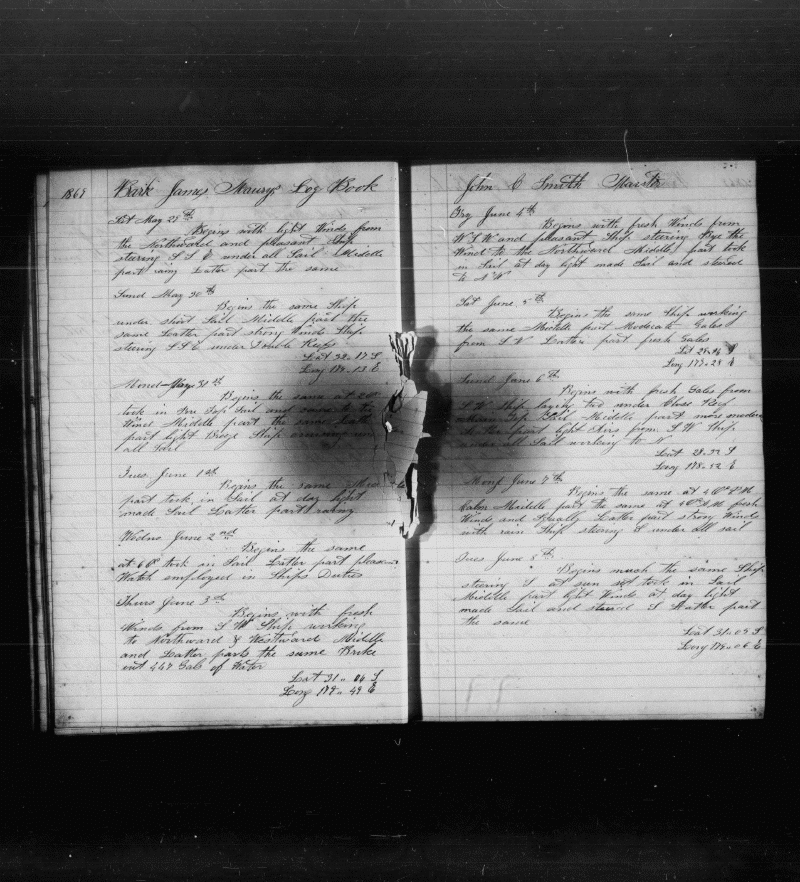 1869 Bark James Maurys Log Book
Sat May 29th
Begins with light Winds from
the Northward and pleasant Ship
steering S S E under all Sail Middle
part rainy Latter part the same
Sund May 30th
Begins the same Ship
under short Sail Middle part the
same Latter part strong Winds Ship
steering S S E under Double Reefs
Lat 32.17 S
Long 179.13 E
Mond May 31st
Begins the same at
took in Fore Top Sail and came to the
Wind Middle part the same Latter
part light Breeze Ship
all Sail
Tues June 1st
Begins the same
part took in Sail at day light
made Sail Latter part rainy
Wednes June 2nd
Begins the same
at 6 O took in Sail Latter part pleasant
Watch employed in Ships Duties
Thurs June 3th
Begins with fresh
Winds from S W Ship working
to Northward & Westward Middle
and Latter parts the same Broke
out 447 Gals of Water
Lat 31.. 04 S
Long 178.. 49 E
John C Smith Master
Fry June 4th
Begins with fresh Winds from
W S W and pleasant Ship steering Bye the
Wind to the Northward Middle part took
in Sail at day light made Sail and steared
N W
Sat June 5th
Begins the same Ship working
the same Middle part Moderate Gales
from S W Latter part fresh Gales
S
Long 177.. 28 E
Sund June 6th
Begins with fresh Gales from
S W Ship laying too under Close Reef
Main Top Sail Middle part more moderate
Latter part light Airs from S W Ship
under all Sail working to N
Latt 28.. 32 S
Long 178.. 52 E
Mond June 7th
Begins the same at 4 O P M
Calm Middle part the same at 4 O A M fresh
Winds and Squally Latter part strong Winds
with rain Ship steering S under all sail
Tues June 8th
Begins much the same Ship
steering S at sun set took in Sail
Middle part light Winds at day light
made Sail and steared S Latter part
the same
Lat 31.. 09 S
Long 178.. 06 E